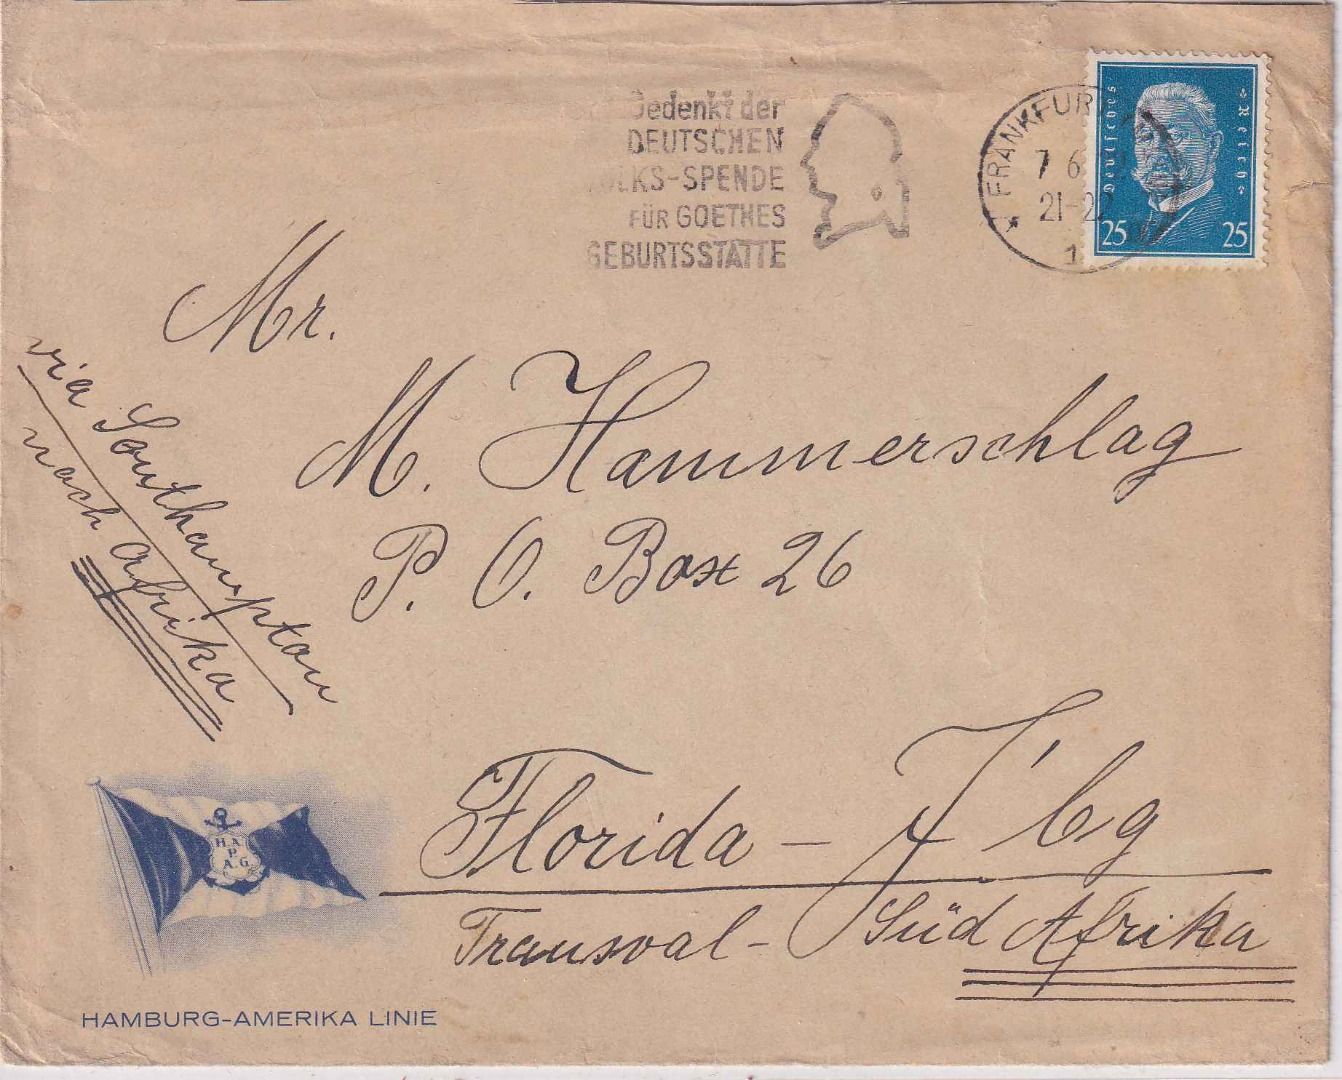 Gedenkt der
DEUTSCHEN
VOLKS-SPENDE
FÜR GOETHES
GEBURTSSTÄTTE
FRANKFUR
7 6
21-22
1
Deutsches Reich
25 25
Mr.
M. Hammerschlag
P. O. Box 26
Florida - J'bg
Transval - Süd Afrika
via Southampton
nach Afrika
H. A.
P.
A. G.
HAMBURG-AMERIKA LINIE